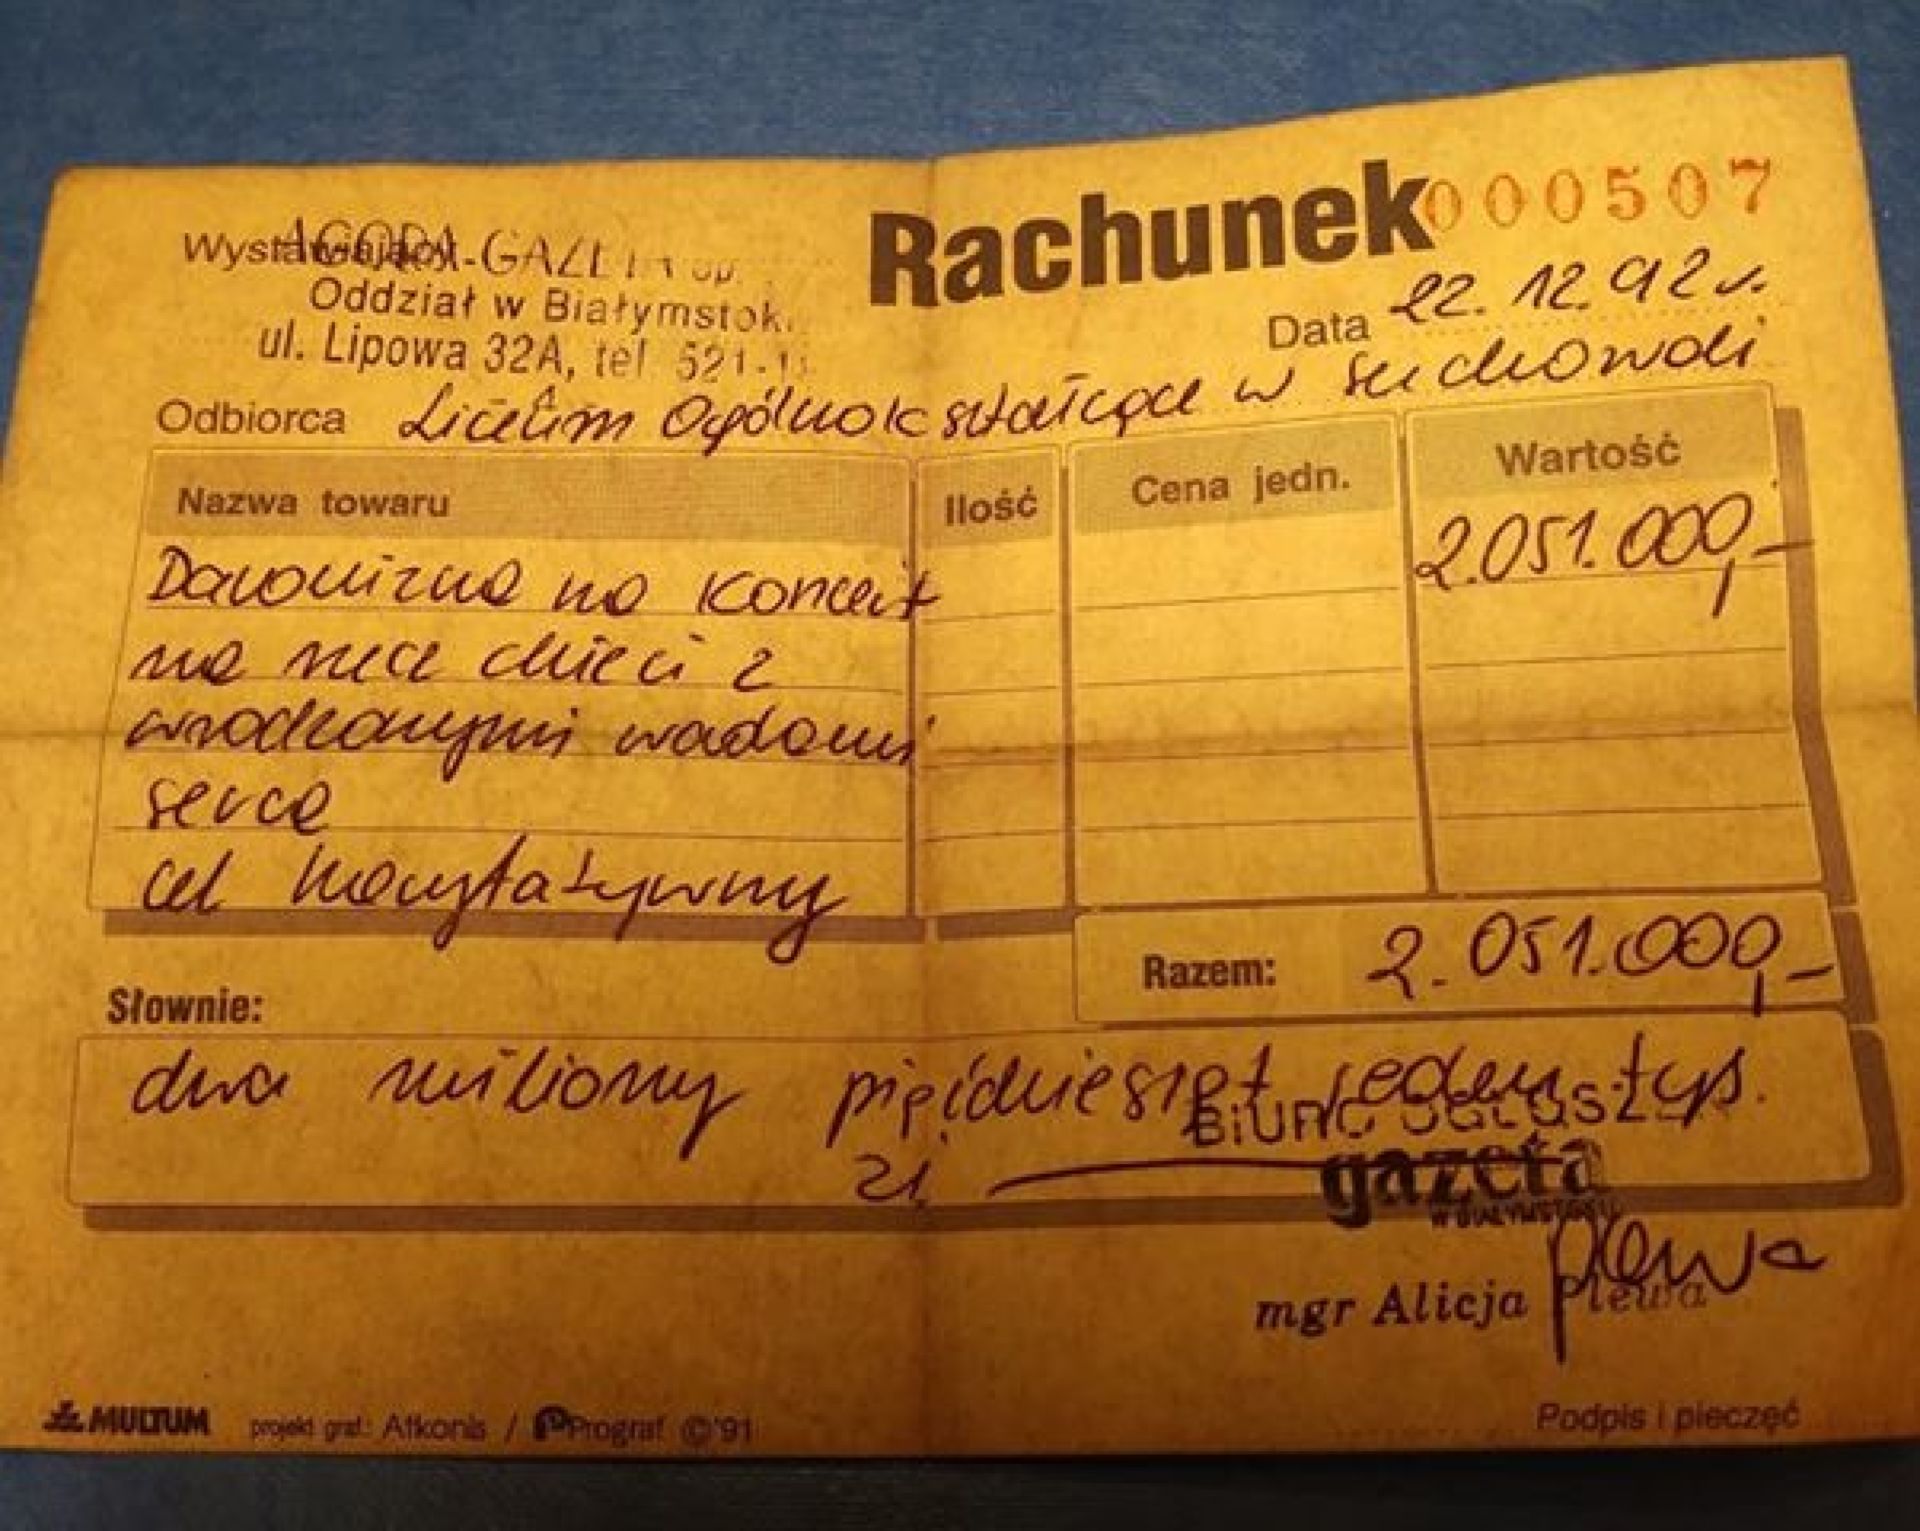 Rachunek 000507
Wystawiający AGORA-GAZETA
Oddział w Białymstoku
ul. Lipowa 32A, tel 521-
Data 22.12.92 r.
Odbiorca Liceum Ogólnokształcące w Suchowoli
Nazwa towaru Ilość Cena jedn. Wartość
Darowizna na koncert 2.051.000,-
na rzecz dzieci z
wrodzonymi wadami
serca
cel charytatywny
Razem: 2.051.000,-
Słownie:
dwa miliony pięćdziesiąt jeden tys.
zł.
BIURO OGŁOSZ
gazeta
W BIAŁYMSTOKU
Plewa
mgr Alicja Plewa
MULTUM projekt graf: Atkonis / Prograf ©'91
Podpis i pieczęć